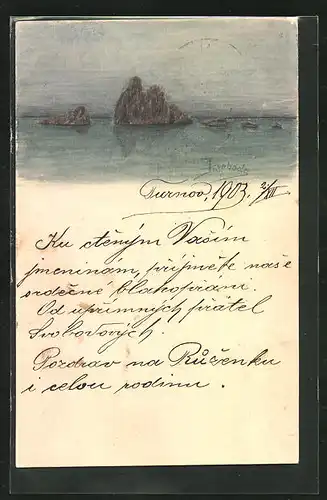 Turnov, 1903. 2/XII
Ku ctěným Vaším
jmeninám, přijměte naše
srdečné blahopřání.
Od upřímných přátel
Svobodových.
Pozdrav na Růženku
i celou rodinu.